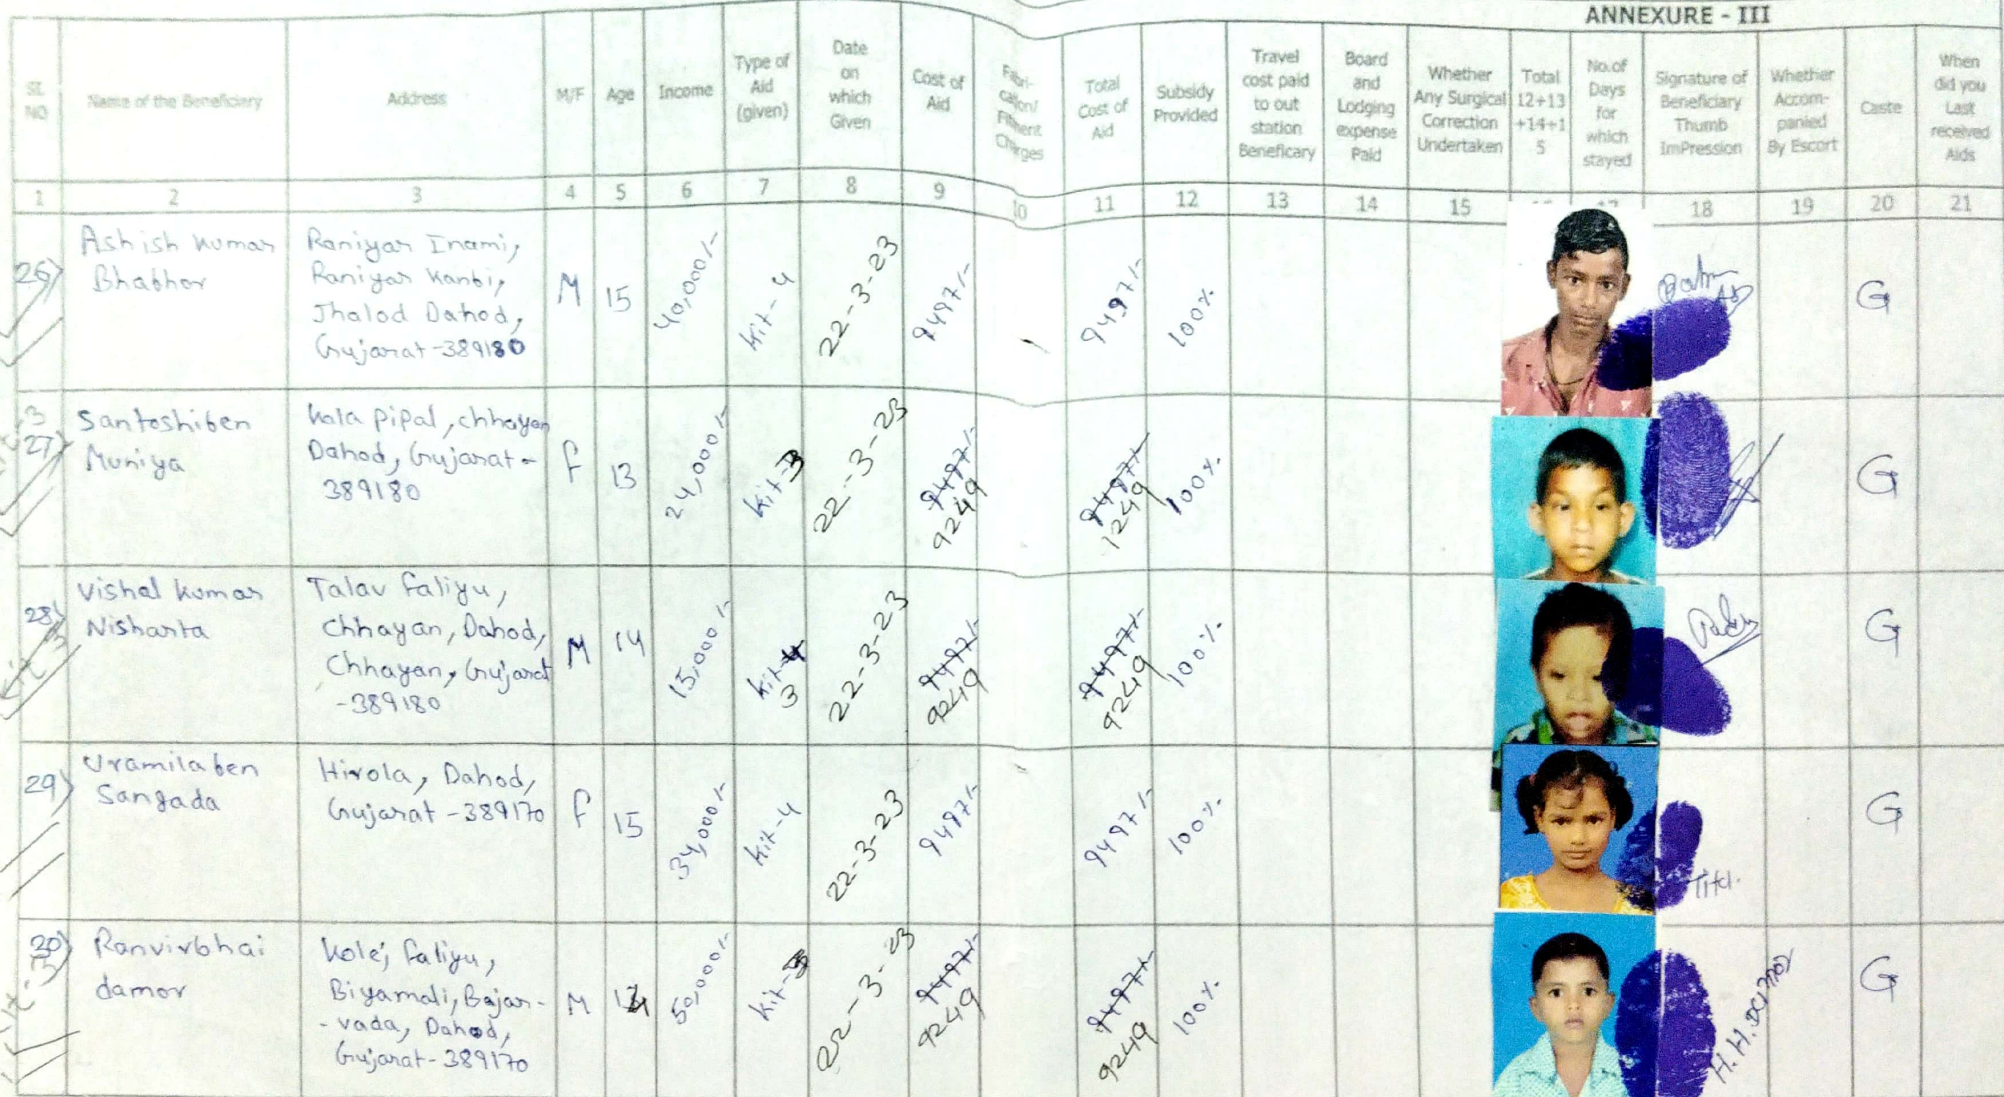 ANNEXURE - III
SL NO
Name of the Beneficiary
Address
M/F
Age
Income
Type of
Aid
(given)
Date
on
which
Given
Cost of
Aid
Fabri-
cation/
Fitment
Charges
Total
Cost of
Aid
Subsidy
Provided
Travel
cost paid
to out
station
Beneficary
Board
and
Lodging
expense
Paid
Whether
Any Surgical
Correction
Undertaken
Total
12+13
+14+1
5
No.of
Days
for
which
stayed
Signature of
Beneficiary
Thumb
ImPression
Whether
Accom-
panied
By Escort
Caste
When
did you
Last
received
Aids
1 2 3 4 5 6 7 8 9 10 11 12 13 14 15 17 18 19 20 21
26)
Ashish kumar
Bhabhor
Raniyar Inami,
Raniyar Kanbi,
Jhalod Dahod,
Gujarat-389180
M
15
40,000/-
kit-4
22-3-23
9497/-
9497/-
100%
G
27)
Santoshiben
Muniya
Kala pipal, chhayan
Dahod, Gujarat-
389180
F
13
24,000/-
kit-3
22-3-23
9497/-
9249
9497/-
1249
100%
G
28)
Vishal kumar
Nisharta
Talav faliyu,
Chhayan, Dahod,
Chhayan, Gujarat
-389180
M
14
15,000/-
kit-4
3
22-3-23
9497/-
9249
9497/-
9249
100%
G
29)
Urmilaben
Sangada
Hirola, Dahod,
Gujarat-389170
F
15
34,000/-
kit-4
22-3-23
9497/-
9497/-
100%
G
30)
Ranvirbhai
damor
Kolej faliyu,
Biyamali, Bajar-
-vada, Dahod,
Gujarat-389170
M
14
50,000/-
kit-3
22-3-23
9497/-
9249
9497/-
9249
100%
G